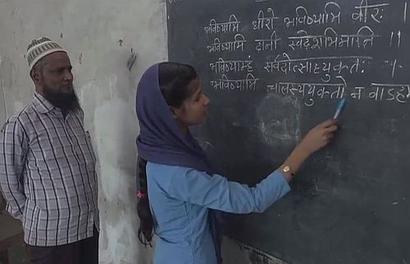 भविष्यामि धीरो भविष्यामि वीरः ।
भविष्यामि दानी स्वदेशाभिमानि ।।
भविष्याम्हं सर्वदोत्साहयुक्तः ।
भविष्यामि चालस्ययुक्तो न वाऽह